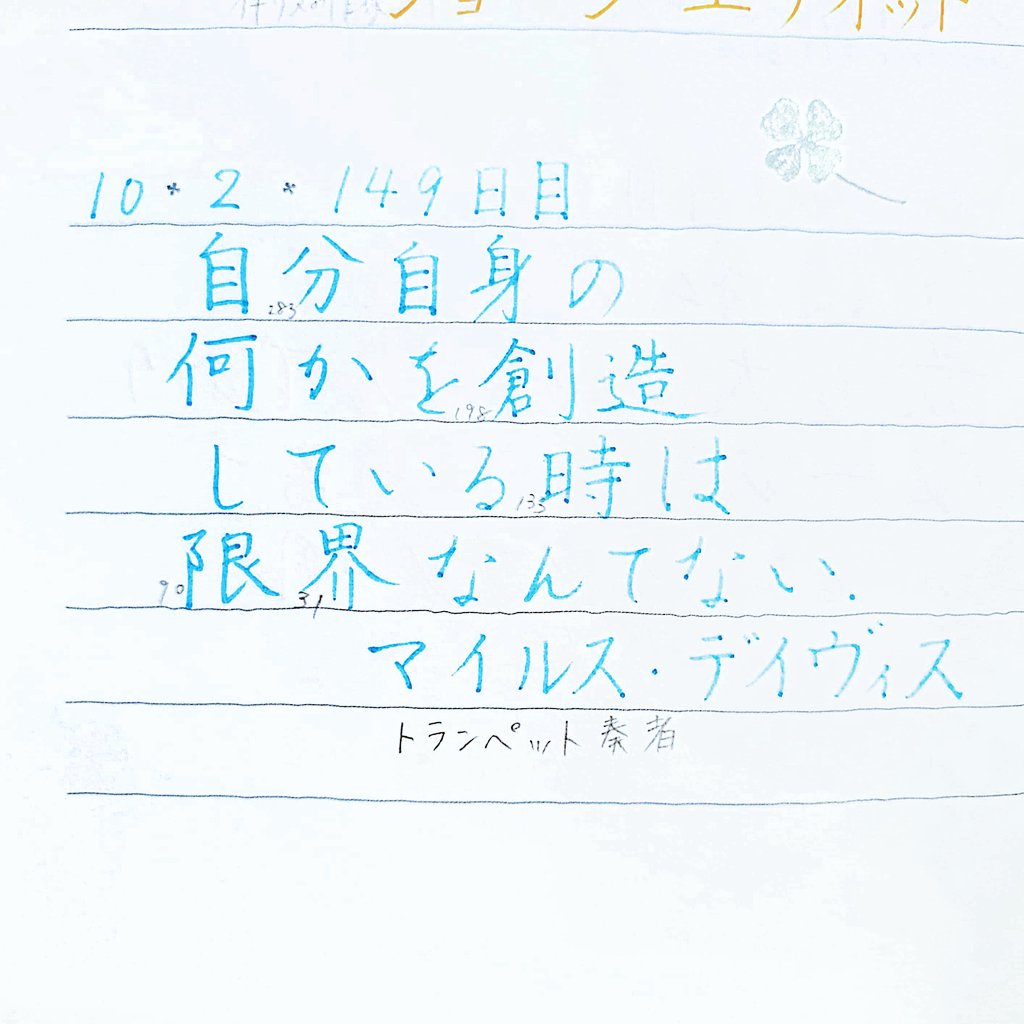 ジョージ・エリオット
10*2*149日目
自分自身の
283
何かを創造
198
している時は
133
限界なんてない.
90 31
マイルス・デイヴィス
トランペット奏者